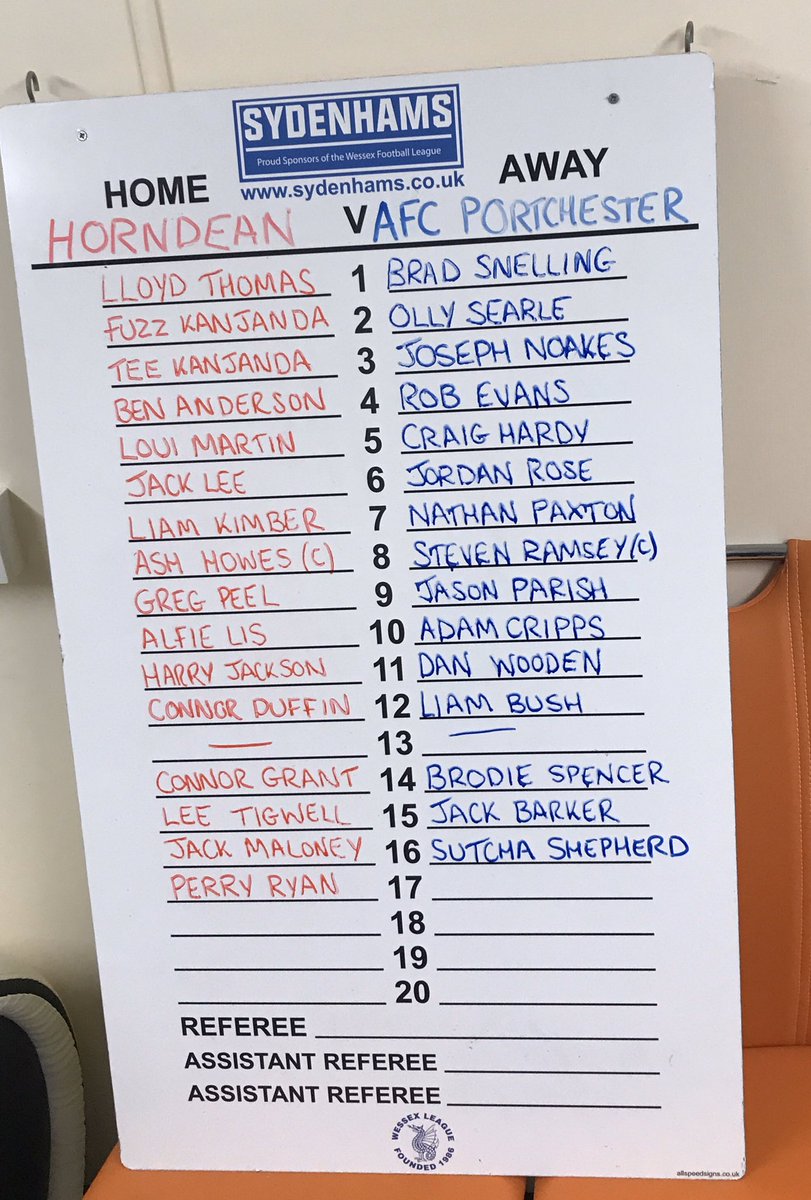 SYDENHAMS
Proud Sponsors of the Wessex Football League
www.sydenhams.co.uk
HOME AWAY
HORNDEAN V AFC PORTCHESTER
LLOYD THOMAS 1 BRAD SNELLING
FUZZ KANJANDA 2 OLLY SEARLE
TEE KANJANDA 3 JOSEPH NOAKES
BEN ANDERSON 4 ROB EVANS
LOUI MARTIN 5 CRAIG HARDY
JACK LEE 6 JORDAN ROSE
LIAM KIMBER 7 NATHAN PAXTON
ASH HOWES (C) 8 STEVEN RAMSEY (C)
GREG PEEL 9 JASON PARISH
ALFIE LIS 10 ADAM CRIPPS
HARRY JACKSON 11 DAN WOODEN
CONNOR DUFFIN 12 LIAM BUSH
— 13 —
CONNOR GRANT 14 BRODIE SPENCER
LEE TIGWELL 15 JACK BARKER
JACK MALONEY 16 SUTCHA SHEPHERD
PERRY RYAN 17
18
19
20
REFEREE
ASSISTANT REFEREE
ASSISTANT REFEREE
WESSEX LEAGUE
FOUNDED 1986
allspeedsigns.co.uk